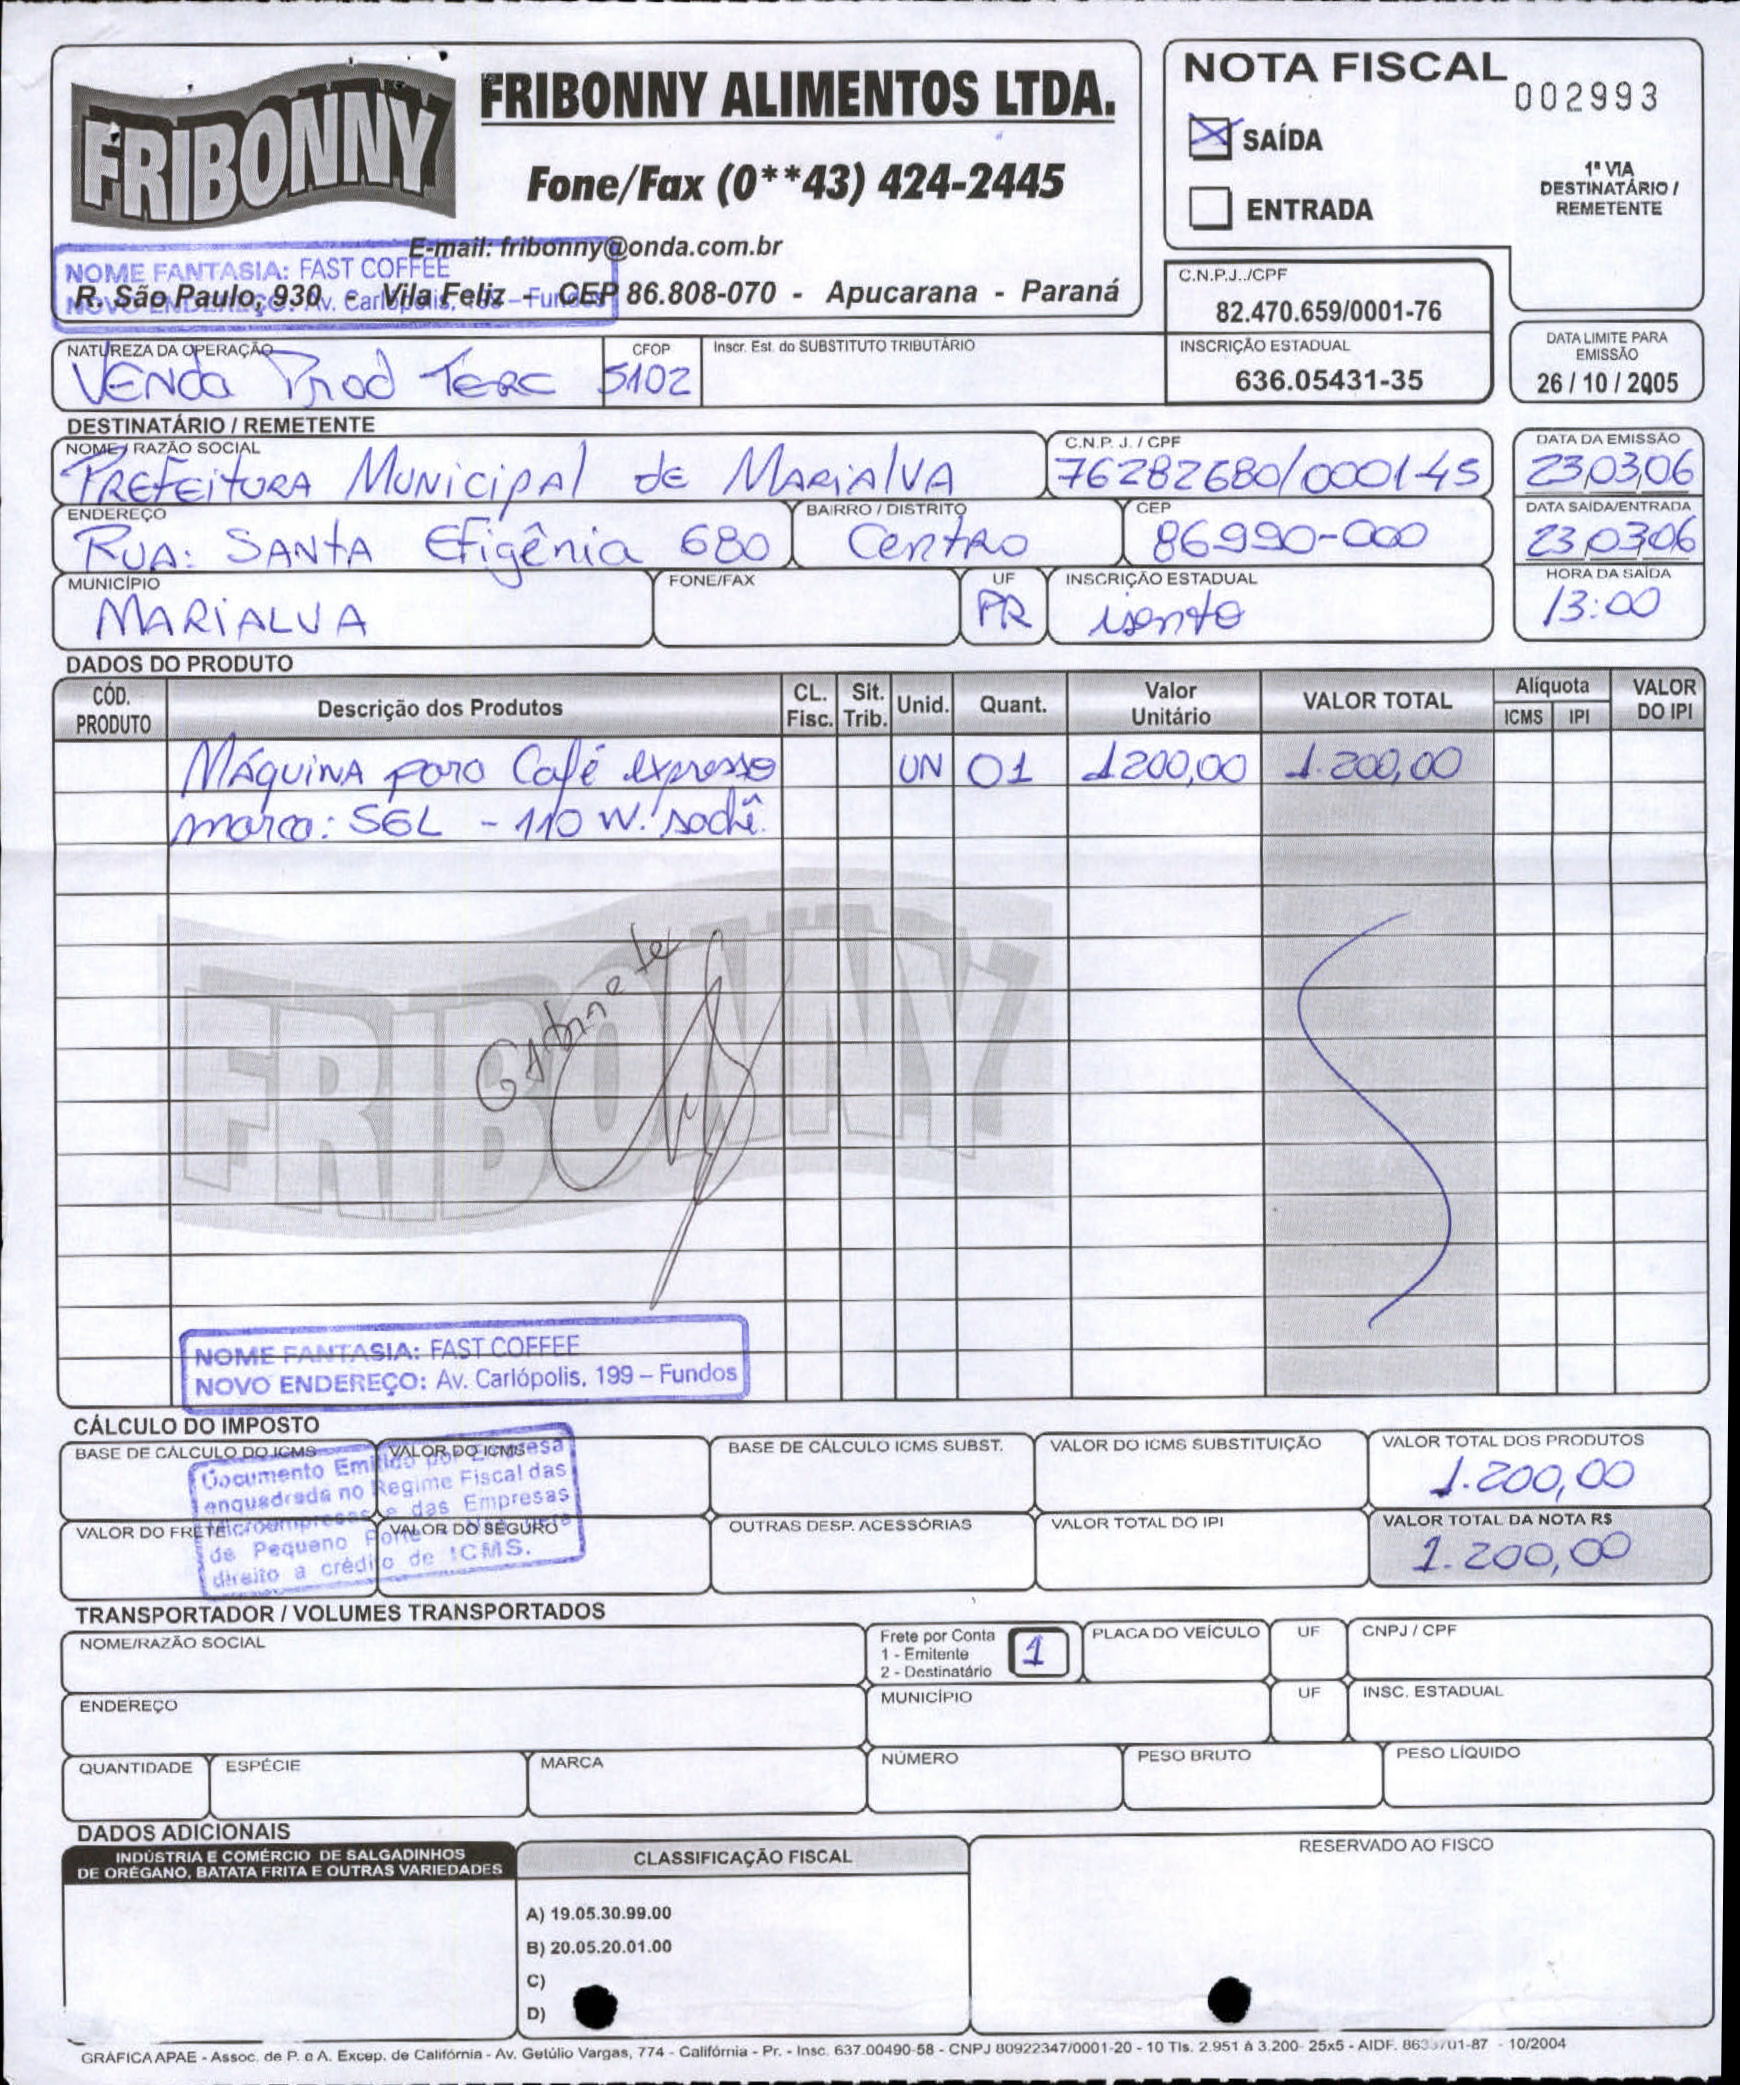 FRIBONNY
FRIBONNY ALIMENTOS LTDA.
Fone/Fax (0**43) 424-2445
E-mail: fribonny@onda.com.br
NOME FANTASIA: FAST COFFEE
R. São Paulo, 930 - Vila Feliz - CEP 86.808-070 - Apucarana - Paraná
NOTA FISCAL
002993
SAÍDA
ENTRADA
1ª VIA
DESTINATÁRIO /
REMETENTE
C.N.P.J../CPF
82.470.659/0001-76
NATUREZA DA OPERAÇÃO
VENDA Prod Terc
CFOP
5102
Inscr. Est. do SUBSTITUTO TRIBUTÁRIO
INSCRIÇÃO ESTADUAL
636.05431-35
DATA LIMITE PARA
EMISSÃO
26 / 10 / 2005
DESTINATÁRIO / REMETENTE
NOME / RAZÃO SOCIAL
PREFEITURA MUNICIPAL de MARIALVA
C.N.P. J. / CPF
76282680/000145
DATA DA EMISSÃO
23,03,06
ENDEREÇO
RUA: SANTA Efigênia 680
BAIRRO / DISTRITO
Centro
CEP
86990-000
DATA SAÍDA/ENTRADA
23,03,06
MUNICÍPIO
MARIALVA
FONE/FAX
UF
PR
INSCRIÇÃO ESTADUAL
isento
HORA DA SAÍDA
13:00
DADOS DO PRODUTO
CÓD. PRODUTO Descrição dos Produtos CL. Fisc. Sit. Trib. Unid. Quant. Valor Unitário VALOR TOTAL Alíquota ICMS IPI VALOR DO IPI
MÁQUINA para Café expresso UN 01 1200,00 1.200,00
marca: SGL - 110 W. sachê.
FRIBONNY
Gabinete
NOME FANTASIA: FAST COFFEE
NOVO ENDEREÇO: Av. Carlópolis, 199 – Fundos
CÁLCULO DO IMPOSTO
BASE DE CÁLCULO DO ICMS
VALOR DO ICMS
BASE DE CÁLCULO ICMS SUBST.
VALOR DO ICMS SUBSTITUIÇÃO
VALOR TOTAL DOS PRODUTOS
1.200,00
Documento Emitido por Empresa
enquadrada no Regime Fiscal das
Microempresas e das Empresas
de Pequeno Porte
direito a crédito de ICMS.
VALOR DO FRETE
VALOR DO SEGURO
OUTRAS DESP. ACESSÓRIAS
VALOR TOTAL DO IPI
VALOR TOTAL DA NOTA R$
1.200,00
TRANSPORTADOR / VOLUMES TRANSPORTADOS
NOME/RAZÃO SOCIAL
Frete por Conta
1 - Emitente
2 - Destinatário
1
PLACA DO VEÍCULO
UF
CNPJ / CPF
ENDEREÇO
MUNICÍPIO
UF
INSC. ESTADUAL
QUANTIDADE
ESPÉCIE
MARCA
NÚMERO
PESO BRUTO
PESO LÍQUIDO
DADOS ADICIONAIS
INDÚSTRIA E COMÉRCIO DE SALGADINHOS
DE ORÉGANO, BATATA FRITA E OUTRAS VARIEDADES
CLASSIFICAÇÃO FISCAL
A) 19.05.30.99.00
B) 20.05.20.01.00
C)
D)
RESERVADO AO FISCO
GRÁFICA APAE - Assoc. de P. e A. Excep. de Califórnia - Av. Getúlio Vargas, 774 - Califórnia - Pr. - Insc. 637.00490-58 - CNPJ 80922347/0001-20 - 10 Tls. 2.951 à 3.200- 25x5 - AIDF. - 10/2004